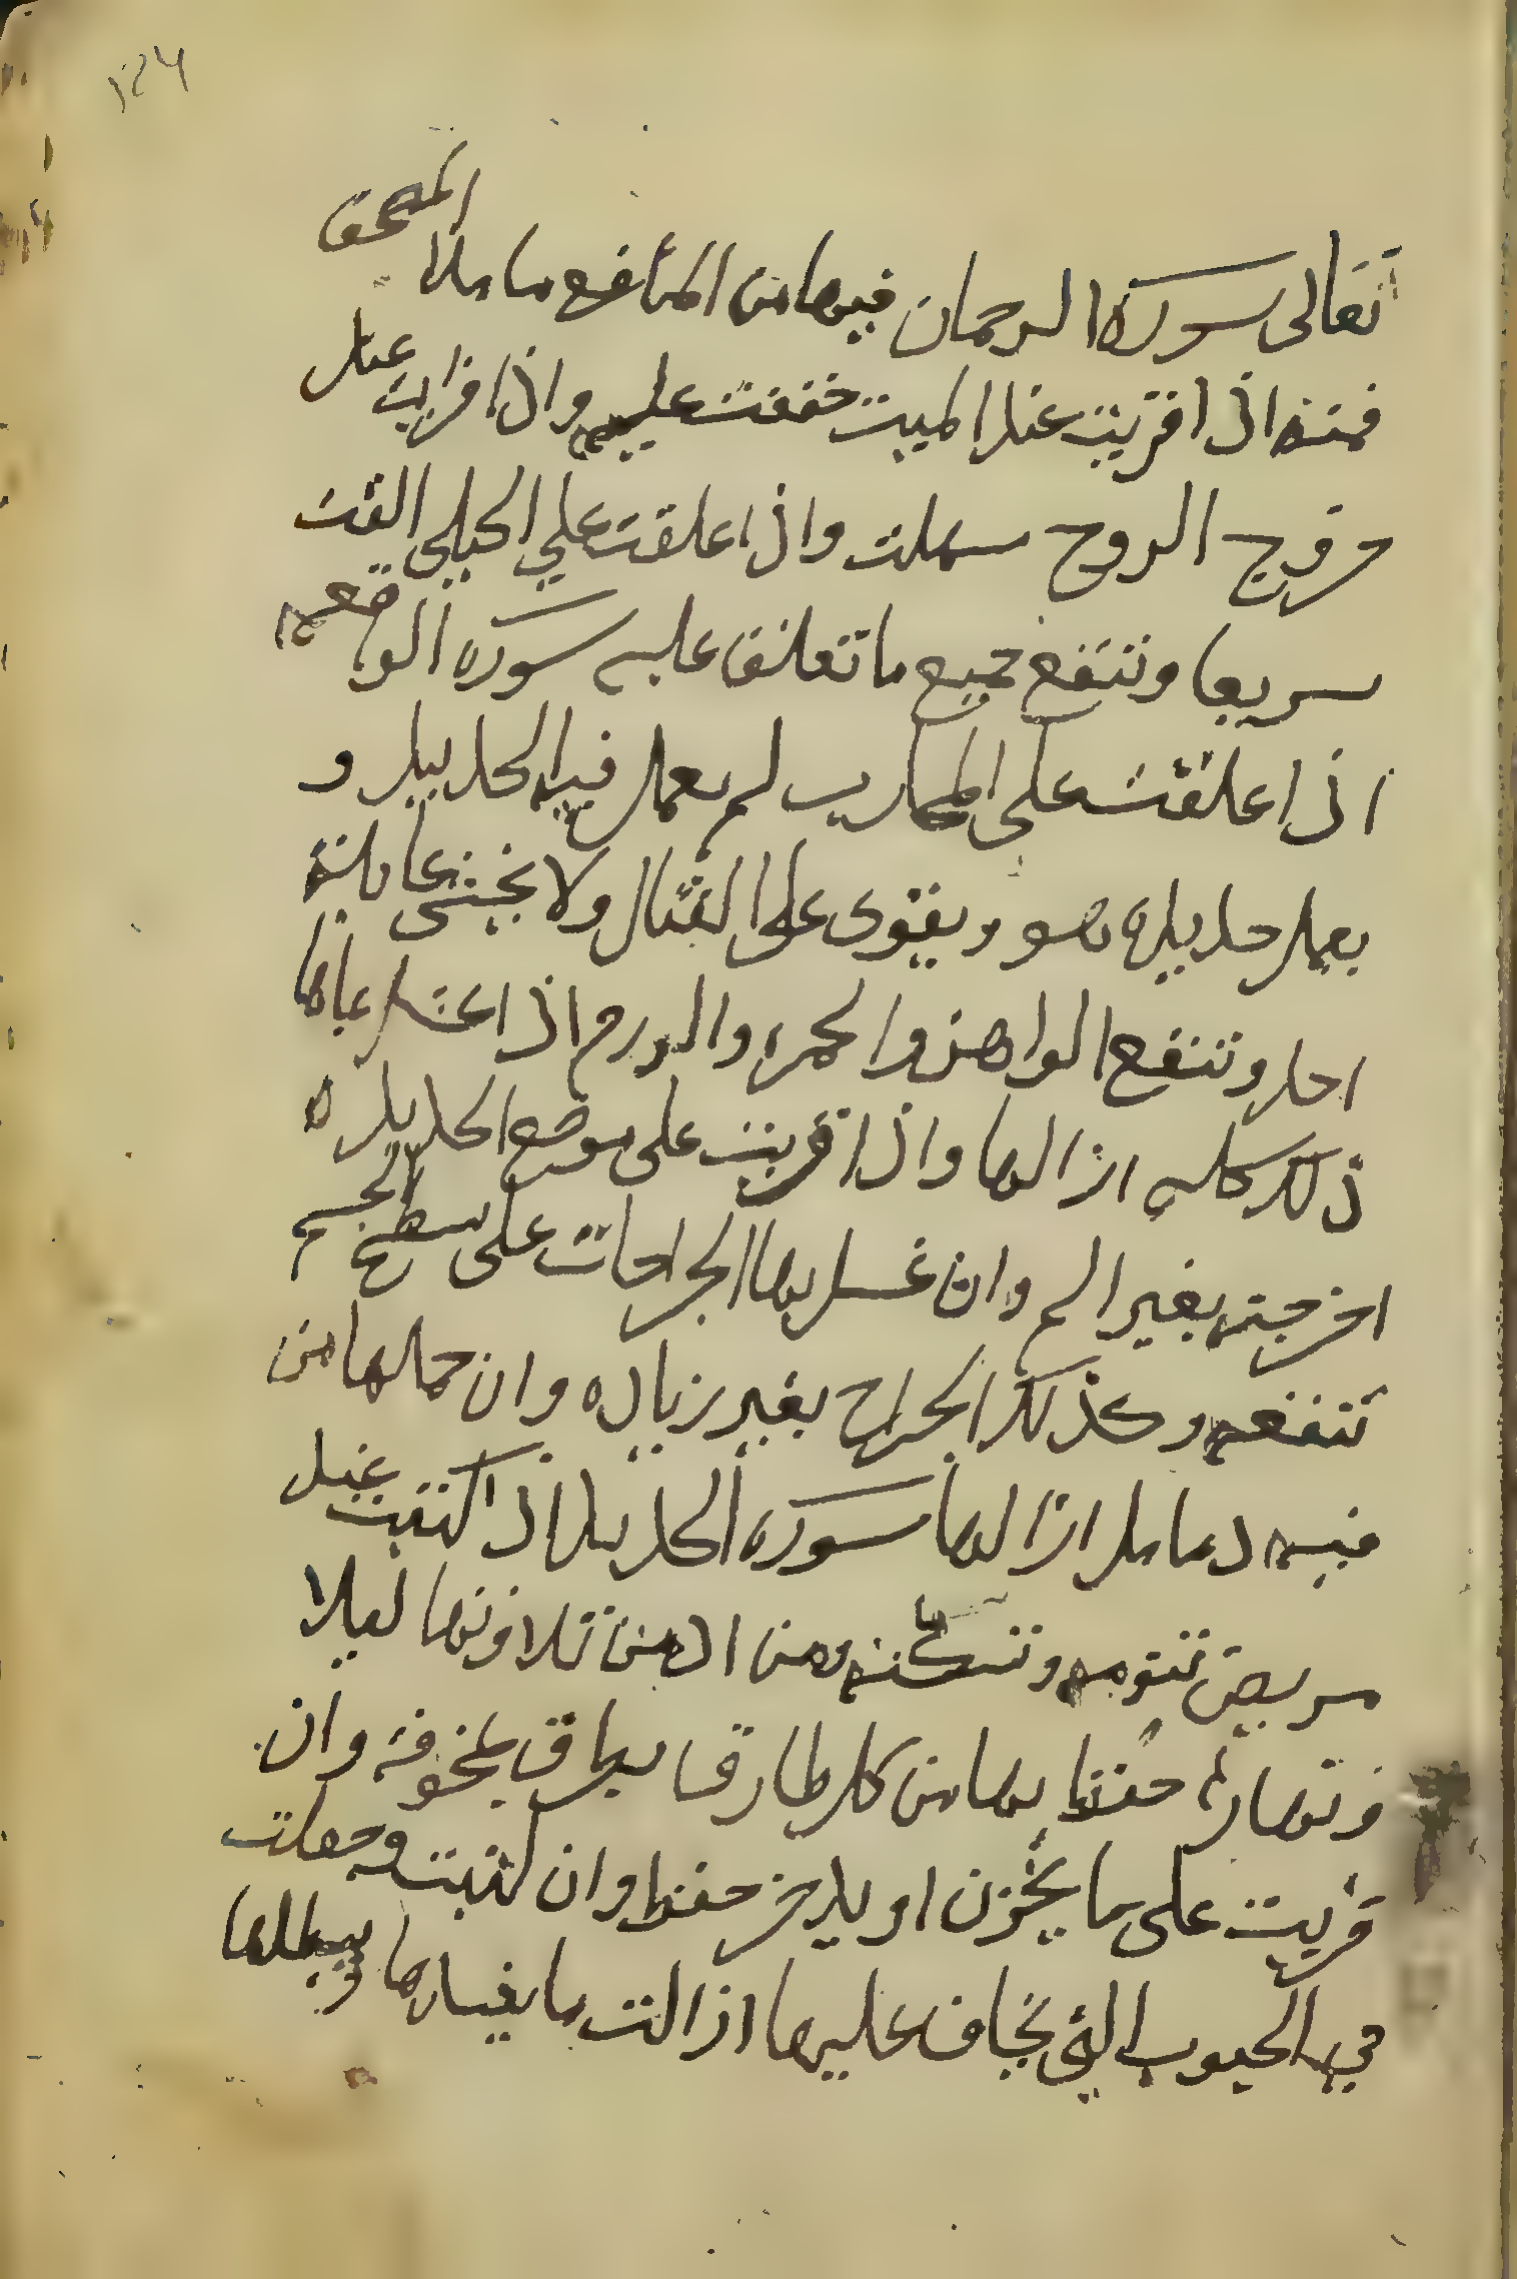 ١٢٦
تعالى سورة الرحمان فيها من المنافع ما ملا
فمنه اذا قريت عند الميت خففت عليه واذا قرات عند
خروج الروح سهلت واذا علقت على الحبلى القت
سريعا وتنفع جميع ما تعلق عليه سورة الواقعه
اذا علقت على المحارب لم يعمل فيه الحديد و
يعمل حديده هو ويقوى على القتال ولا يخشى
احد وتنفع الواهن والحمره والورم اذا غسل بماها
ذلك كله ازالها واذا قريت على موضع الحديده
اخرجته بغير الم وان غسل بها الجراحات على سطح الجسم
تنفعه وكذلك الجراح بغير زياده وان حملها من
فيه دمامل ازالها سورة الحديد اذا كتبت عند
مريض تنومه وتسكنه ومن ادمن تلاوتها ليلا
ونهارا حفظ بها من كل طارق يطرق بمخوفه وان
قريت على ما يخزن او يدخر حفظ وان كتبت وجعلت
في الحبوب التي يخاف عليها ازالت ما يفسدها ويبطلها